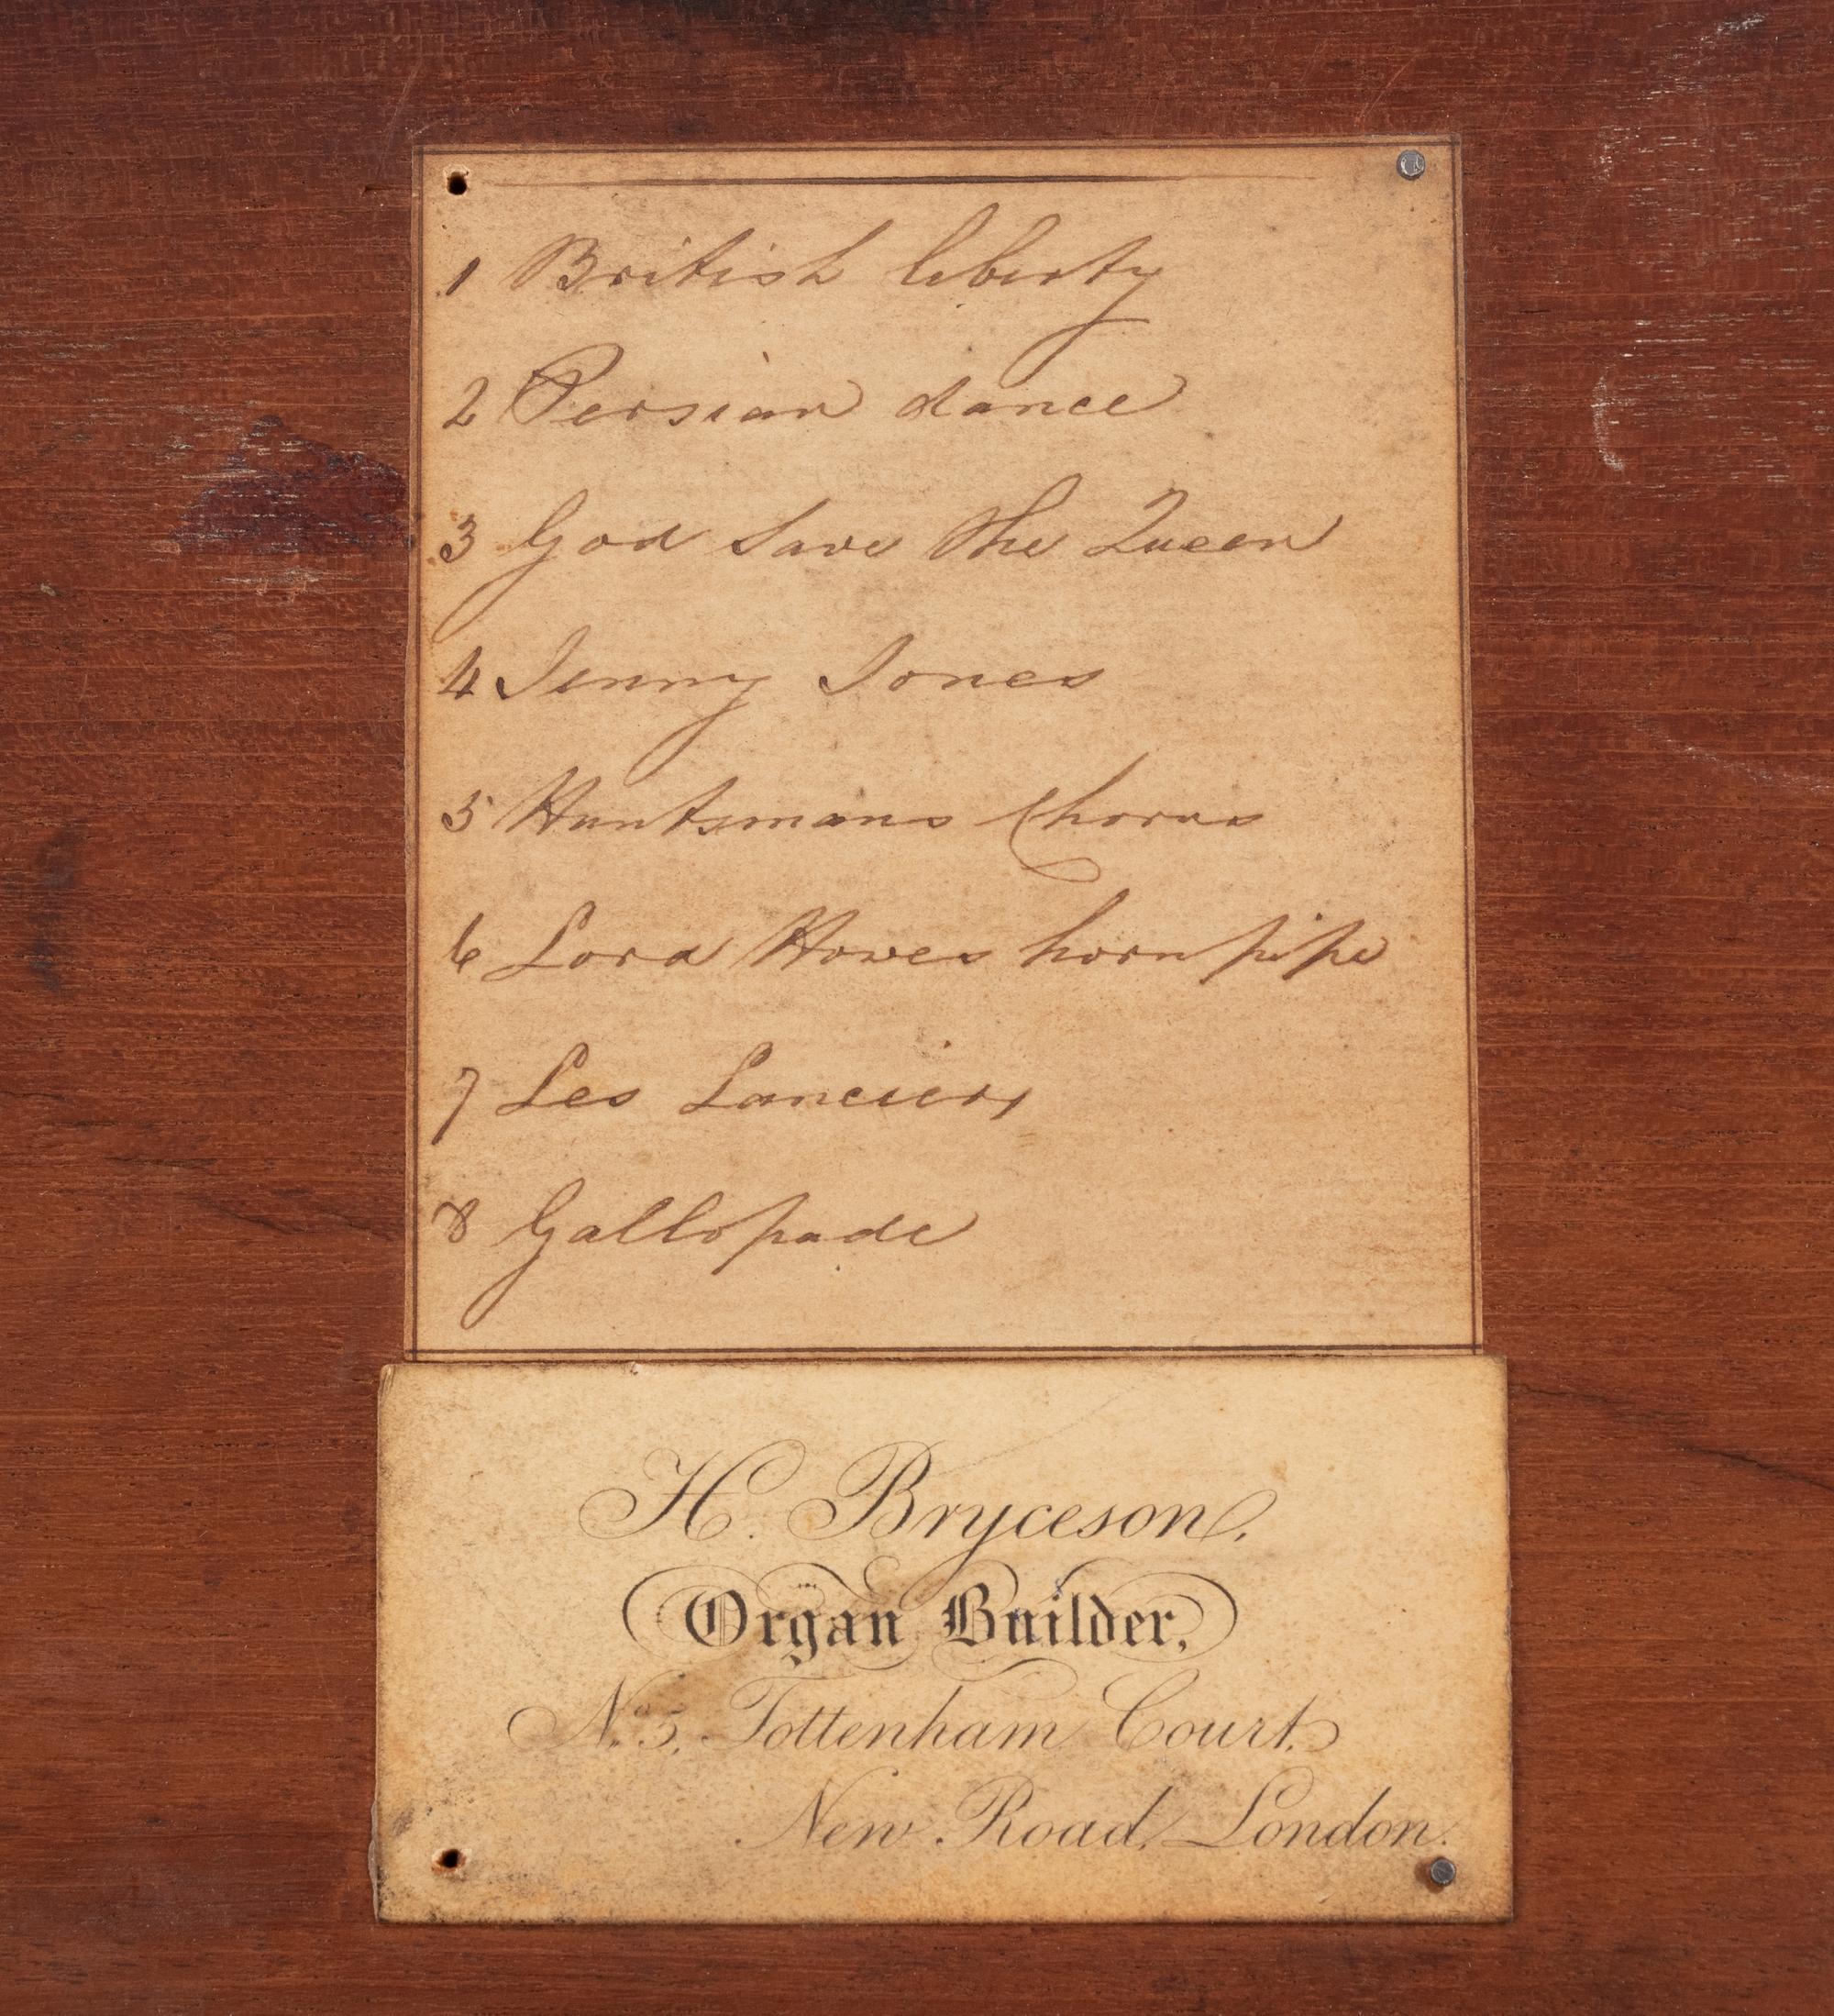 1 British liberty
2 Persian dance
3 God Save The Queen
4 Jenny Jones
5 Huntsmans Chorus
6 Lord Howes hornpipe
7 Les Lanciers
8 Gallopade
H. Bryceson,
Organ Builder,
No. 5, Tottenham Court,
New Road, London.